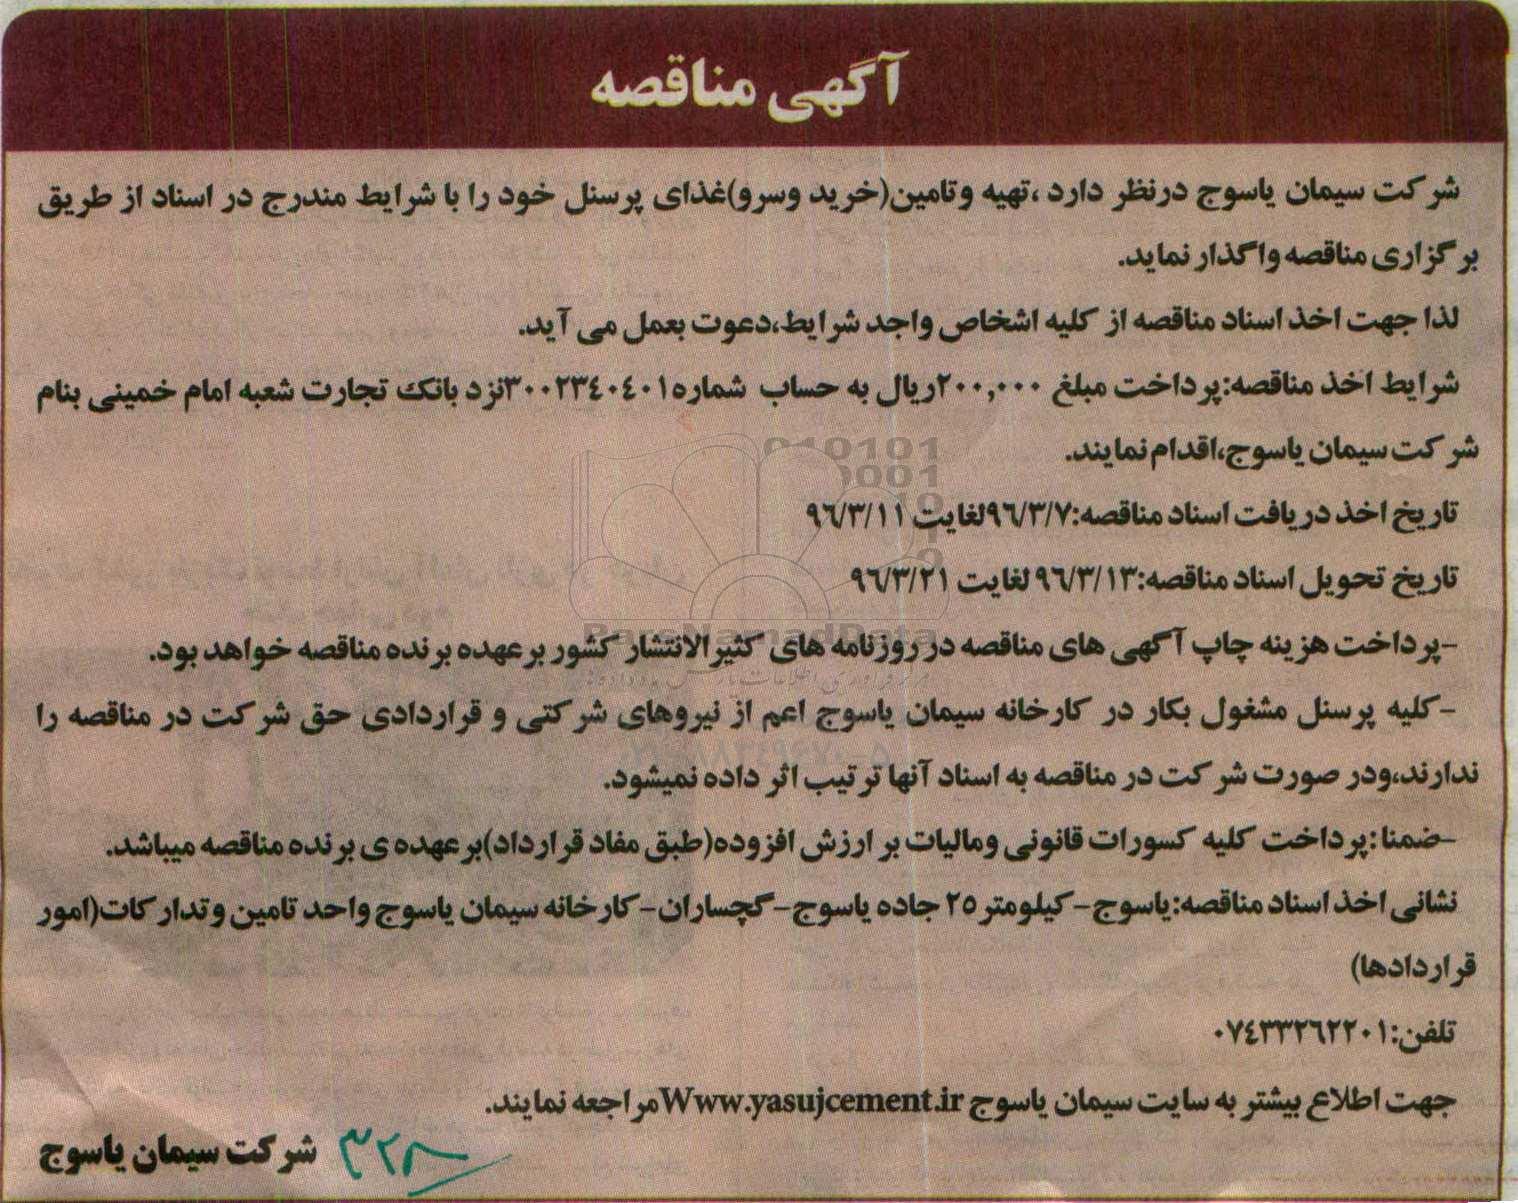 آگهی مناقصه
شرکت سیمان یاسوج درنظر دارد ،تهیه وتامین(خرید وسرو)غذای پرسنل خود را با شرایط مندرج در اسناد از طریق
برگزاری مناقصه واگذار نماید.
لذا جهت اخذ اسناد مناقصه از کلیه اشخاص واجد شرایط،دعوت بعمل می آید.
شرایط اخذ مناقصه:پرداخت مبلغ ۲۰۰,۰۰۰ریال به حساب شماره۳۰۰۲۳۴۰۴۰۱نزد بانک تجارت شعبه امام خمینی بنام
شرکت سیمان یاسوج،اقدام نمایند.
تاریخ اخذ دریافت اسناد مناقصه:۹۶/۳/۷لغایت ۹۶/۳/۱۱
تاریخ تحویل اسناد مناقصه:۹۶/۳/۱۳ لغایت ۹۶/۳/۲۱
-پرداخت هزینه چاپ آگهی های مناقصه در روزنامه های کثیرالانتشار کشور برعهده برنده مناقصه خواهد بود.
-کلیه پرسنل مشغول بکار در کارخانه سیمان یاسوج اعم از نیروهای شرکتی و قراردادی حق شرکت در مناقصه را
ندارند،ودر صورت شرکت در مناقصه به اسناد آنها ترتیب اثر داده نمیشود.
-ضمنا:پرداخت کلیه کسورات قانونی ومالیات بر ارزش افزوده(طبق مفاد قرارداد)برعهده ی برنده مناقصه میباشد.
نشانی اخذ اسناد مناقصه:یاسوج-کیلومتر ۲۵ جاده یاسوج-گچساران-کارخانه سیمان یاسوج واحد تامین وتدارکات(امور
قراردادها)
تلفن:۰۷۴۳۳۲۶۲۲۰۱
جهت اطلاع بیشتر به سایت سیمان یاسوج Www.yasujcement.irمراجعه نمایند.
شرکت سیمان یاسوج
ParsNamadData